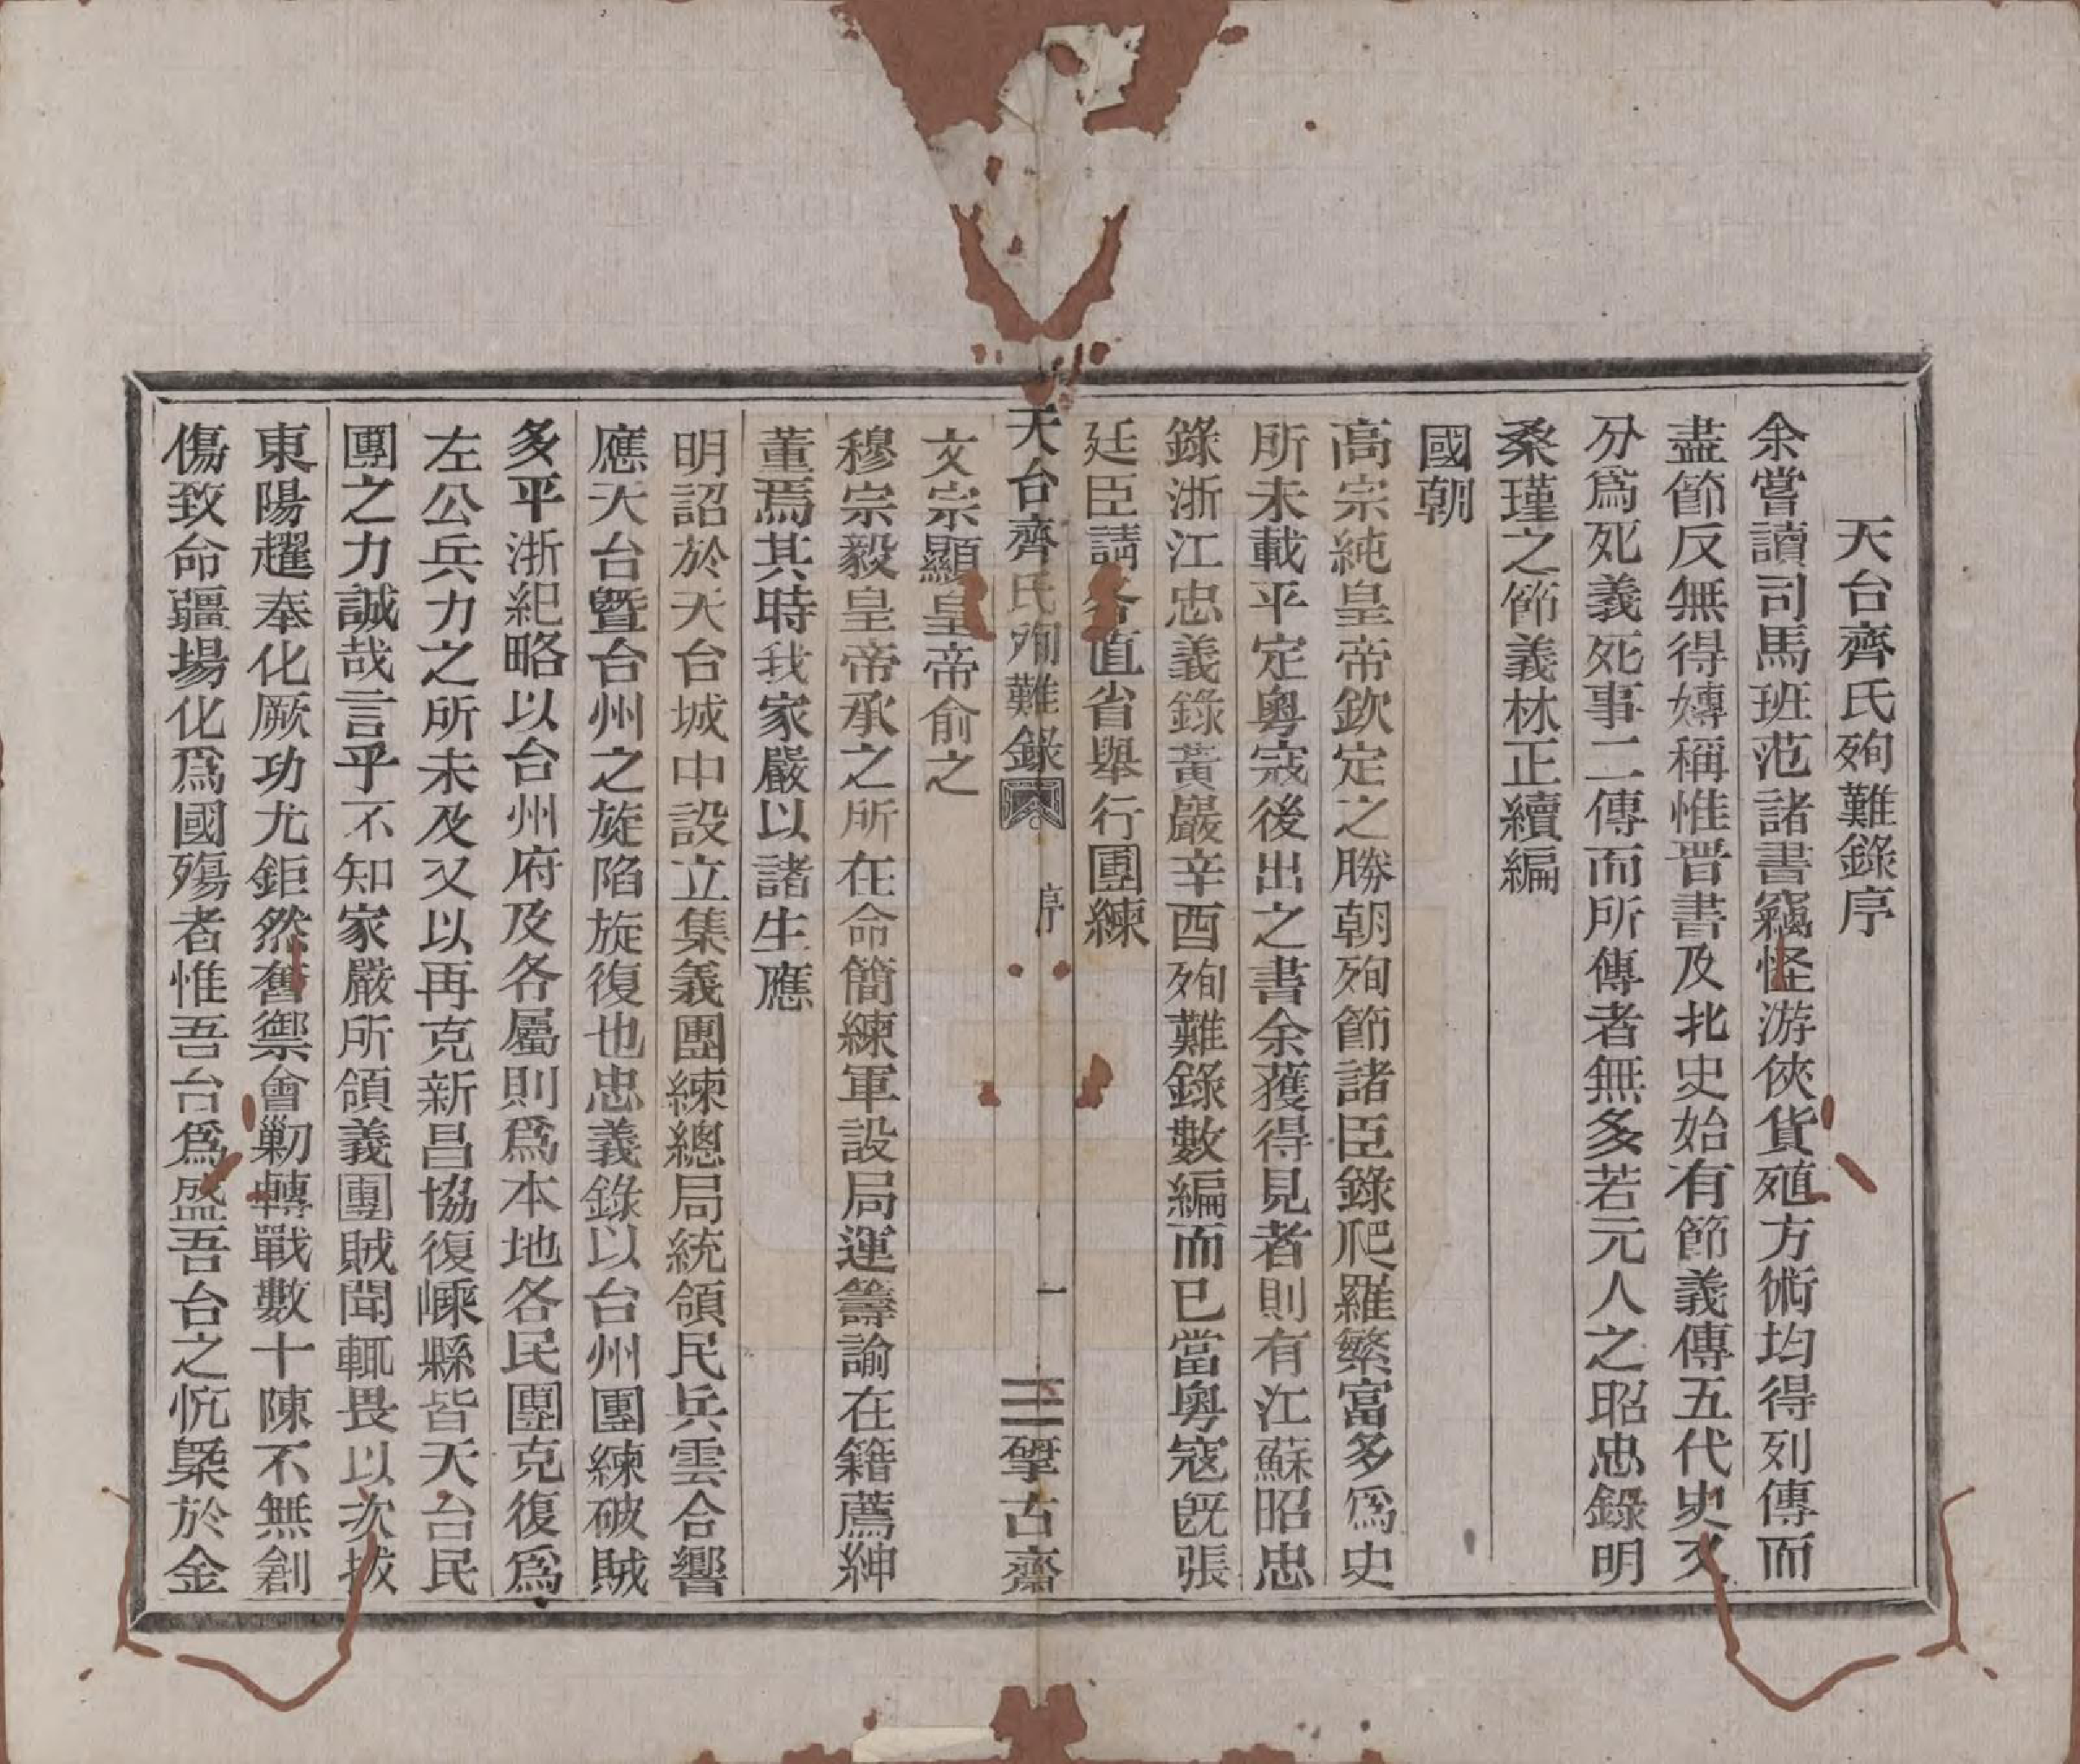 天台齊氏殉難錄序
余嘗讀司馬班范諸書竊怪游俠貨殖方術均得列傳而
盡節反無得專稱惟晋書及北史始有節義傳五代史又
分爲死義死事二傳而所傳者無多若元人之昭忠錄明
桑瑾之節義林正續編
國朝
高宗純皇帝欽定之勝朝殉節諸臣錄爬羅繁富多爲史
所未載平定粵寇後出之書余獲得見者則有江蘇昭忠
錄浙江忠義錄黃巖辛酉殉難錄數編而已當粵寇旣張
廷臣請各直省舉行團練
天台齊氏殉難錄 序 一 揅古齋
文宗顯皇帝俞之
穆宗毅皇帝承之所在命簡練軍設局運籌諭在籍薦紳
董焉其時我家嚴以諸生應
明詔於天台城中設立集義團練總局統領民兵雲合響
應天台曁台州之旋陷旋復也忠義錄以台州團練破賊
多平浙紀略以台州府及各屬則爲本地各民團克復爲
左公兵力之所未及又以再克新昌協復嵊縣皆天台民
團之力誠哉言乎不知家嚴所領義團賊聞輒畏以次拔
東陽趯奉化厥功尤鉅然舊禦會勦轉戰數十陳不無創
傷致命疆場化爲國殤者惟吾台爲盛吾台之忼槩於金